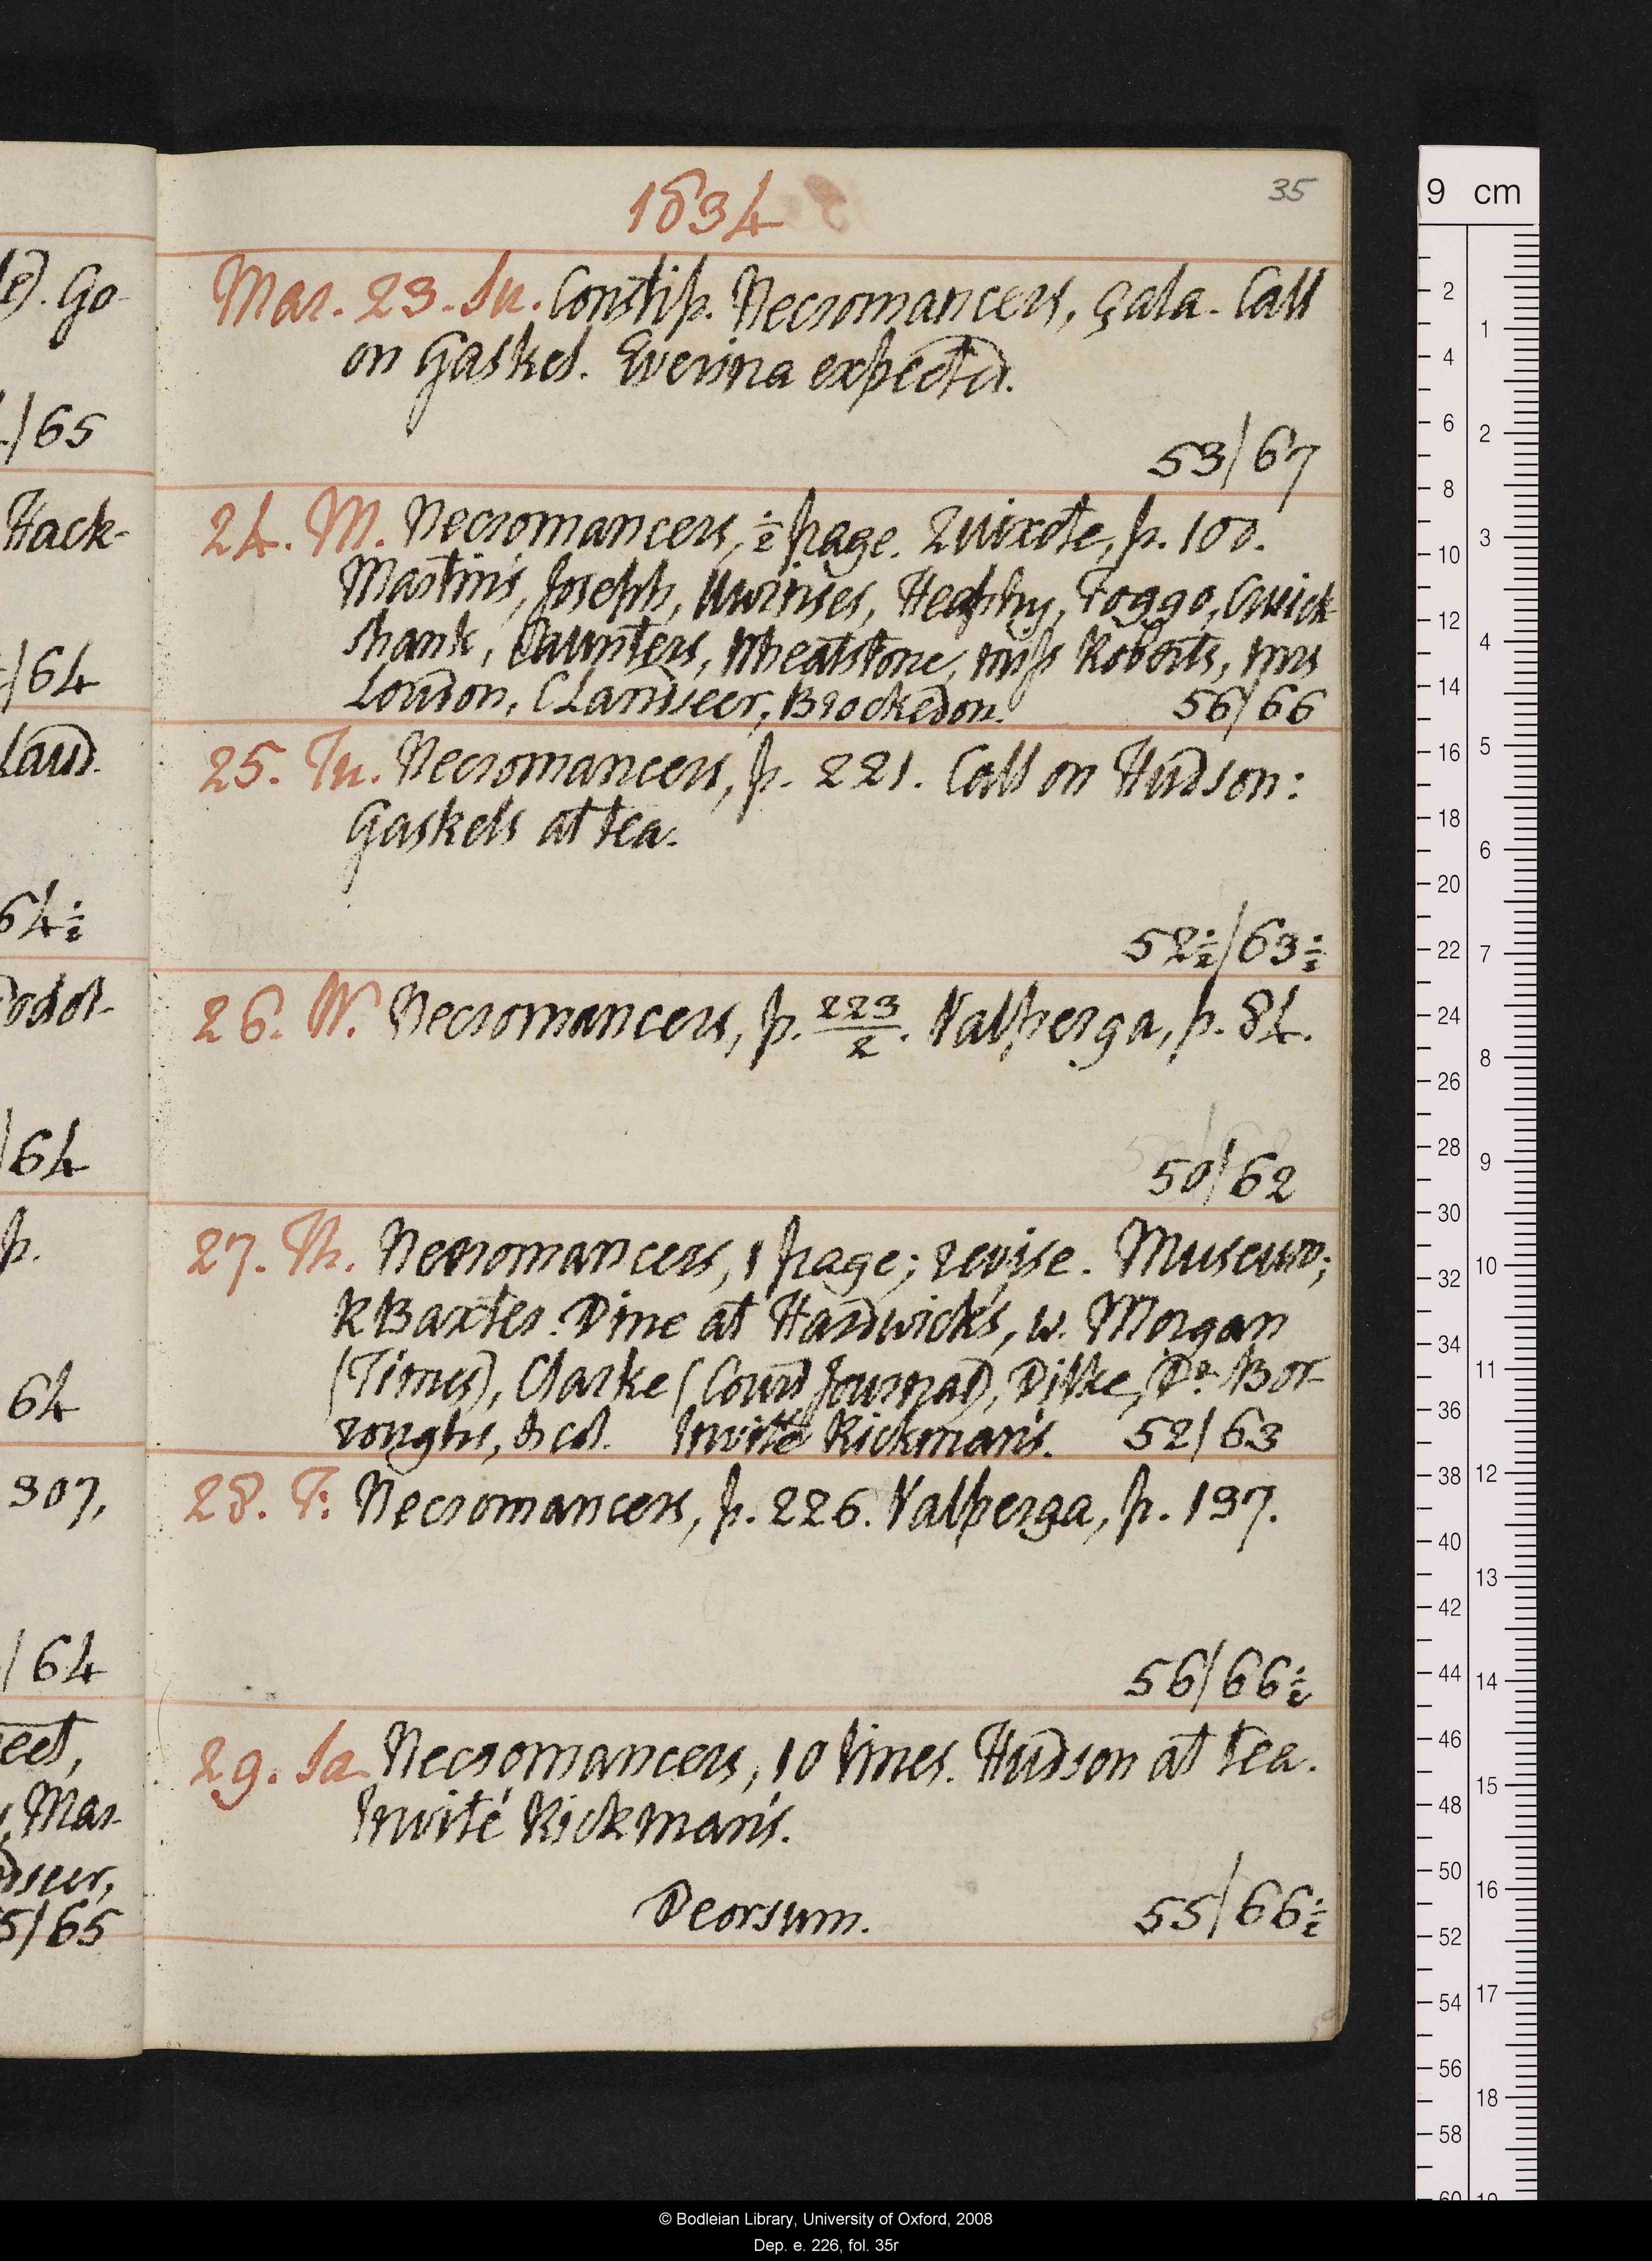 1834
35
Mar. 23. Su. Constip. Necromancers, çala. Call
on Gaskel. Everina expected.
53/67
24. M. Necromancers, ½ page. Quixote, p. 100.
Martin's, Joseph, Uwinses, Heaphy, Foggo, Cruick
shank, Wheatstone, miss Roberts, mrs
Loudon, C Landseer, Brockedon. 56/66
25. Tu. Necromancers, p. 221. Call on Hudson:
Gaskels at tea.
52½/63½
26. W. Necromancers, p. 223/2. Valperga, p. 84.
50/62
27. Th. Necromancers, 1 page; revise. Museum;
R Baxter. Dine at Hardwick's, w. Morgan
(Times), Clarke (Court Journal), Dilke, Dr. Bor-
roughs, & col. Invité Rickman's. 52/63
28. F. Necromancers, p. 226. Valperga, p. 197.
56/66½
29. Sa. Necromancers, 10 lines. Hudson at tea.
Invité Rickman's.
Deorsum. 55/66½
le). Go-
/65
Hack-
/64
Laud.
64½
/64
p.
64
307,
/64
eet,
, Mar-
dseer,
5/65
9 cm
© Bodleian Library, University of Oxford, 2008
Dep. e. 226, fol. 35r